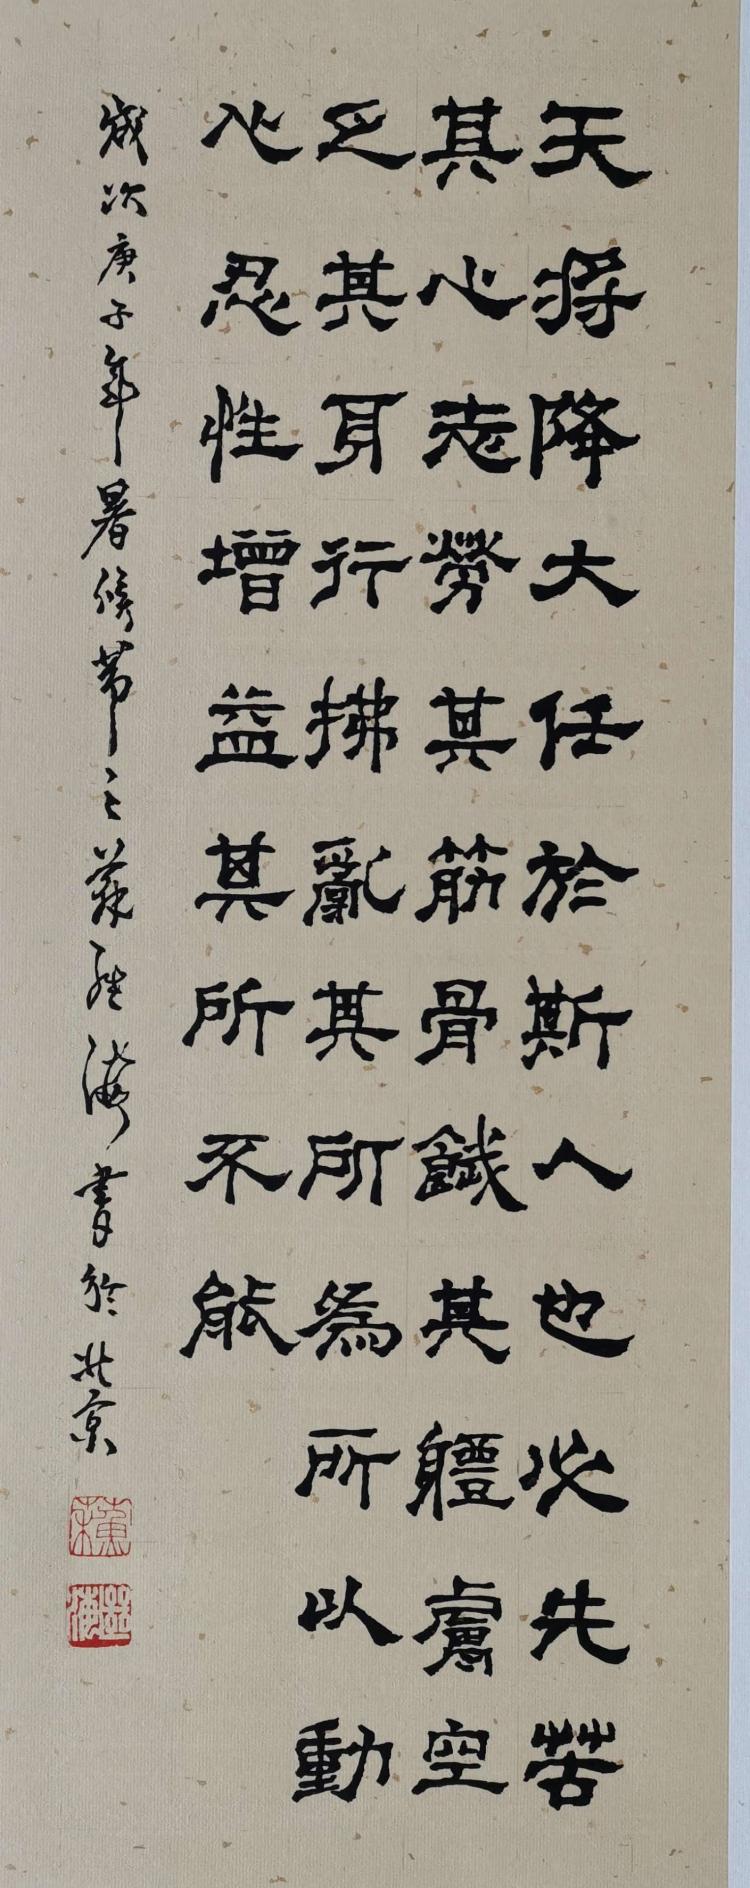 天将降大任於斯人也必先苦
其心志勞其筋骨餓其軆膚空
乏其身行拂亂其所為所以動
心忍性增益其所不能
歲次庚子年暑 節之 海書於北京